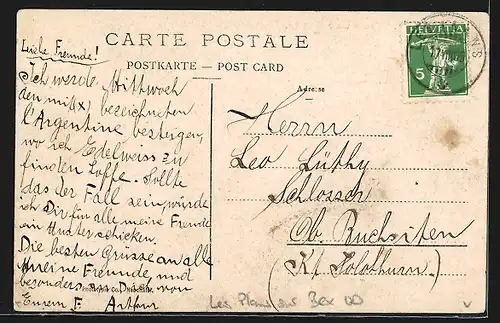 CARTE POSTALE
POSTKARTE — POST CARD
Adresse
HELVETIA
5
Liebe Freunde!
Ich werde Mittwoch
den mit (x) bezeichneten
l'Argentine besteigen,
wo ich Edelweiss zu
finden hoffe. Sollte
das der Fall sein, würde
ich Dir für alle meine Freunde
ein Muster schicken.
Die besten Grüsse an alle
Meine Freunde, und
besonders an Dich von
Eurem F. Arthur
Herrn
Leo Lüthy
Schlosser
Ob. Buchsiten
(Kt. Solothurn)
Les Plans sur Bex